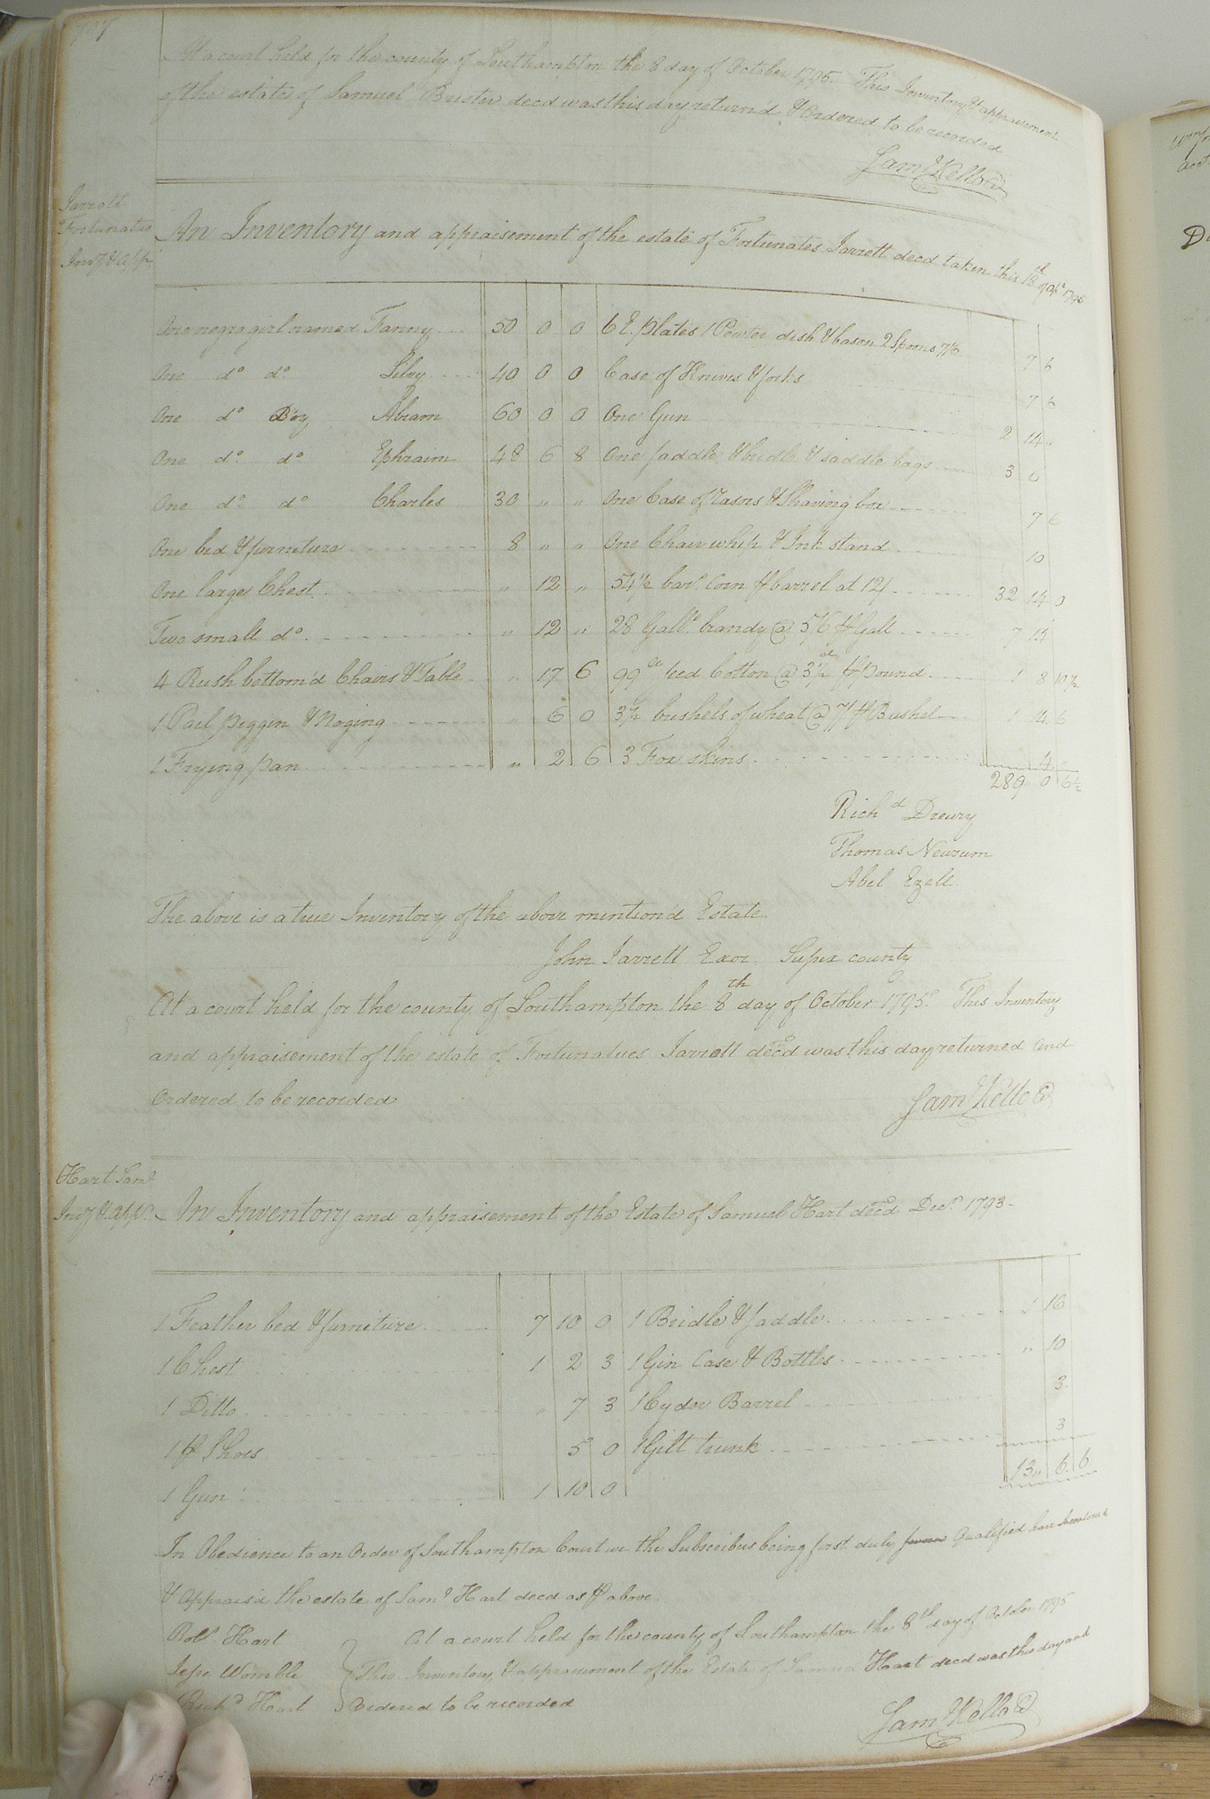 At a court held for the county of Southampton the 8 day of October 1795. This Inventory & appraisement
of the estate of Samuel Brister decd was this day return'd & Ordered to be recorded
Saml Kello
Jarrell
Fortunatus
Invy & App
An Inventory and appraisement of the estate of Fortunates Jarrell decd taken this
One negro girl named Fanny 50 0 0 6 E. plates 1 Pewter dish & bason 2 Spoons 7/6 7 6
One do do Siley 40 0 0 Case of Knives & forks 7 6
One do Boy Abram 60 0 0 One Gun 2 14
One do do Ephraim 48 6 8 One saddle & bridle & saddle bags 3 0
One do do Charles 30 " " One Case of Rasors & Shaving box 7 6
One bed & furneture 8 " " One Chair whip & Ink stand 10
One large Chest " 12 " 54½ barl Corn ⅌ barrel at 12/ 32 14 0
Two small do " 12 " 28 Galls brandy @ 5/6 ⅌ Gall 7 14
4 Rush bottom'd Chairs & Table " 17 6 99 lb seed Cotton @ 3½d ⅌ pound 1 8 10½
1 Pail piggin & Noging " 6 0 3½ bushels of wheat @ 7/ ⅌ Bushel 1 4 6
1 Frying pan " 2 6 3 Fox skins 4
289 0 6½
Richd Drewry
Thomas Newsum
Abel Ezell
The above is a true Inventory of the above mention'd Estate
John Jarrell Exor Susex county
At a court held for the county of Southampton the 8th day of October 1795. This Inventory
and appraisement of the estate of Fortunatues Jarrell decd was this day returned and
Ordered to be recorded
Saml Kello
Hart Saml
Invy & App.
An Inventory and appraisement of the Estate of Samuel Hart decd Decr 1793
1 Feather bed & furniture 7 10 0 1 Bridle & saddle " 16
1 Chest 1 2 3 1 Gin Case & Bottles " 10
1 Ditto " 7 3 1 Cyder Barrel 3
1 ⅌ Shoes 5 0 1 Gilt trunk 3
1 Gun 1 10 0
13 6 6
In Obedience to an Order of Southampton Court we the Subscribers being first duly sworn Qualified have
& Appraisd the estate of Saml Hart decd as ⅌ above
Robt Hart At a court held for the county of Southampton the 8th day of October 1795
Jesse Womble This Inventory & appraisement of the Estate of Samuel Hart decd was this day and
Hart Ordered to be recorded
Saml Kello